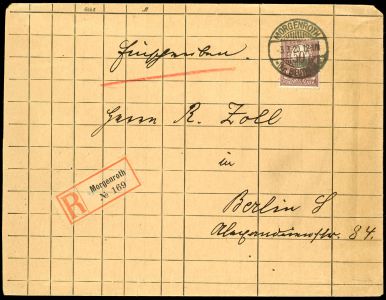 Einschreiben.
MORGENROTH
Herrn R. Zoll
in
Berlin S
Alexandrinenstr. 84.
R
Morgenroth
№ 169